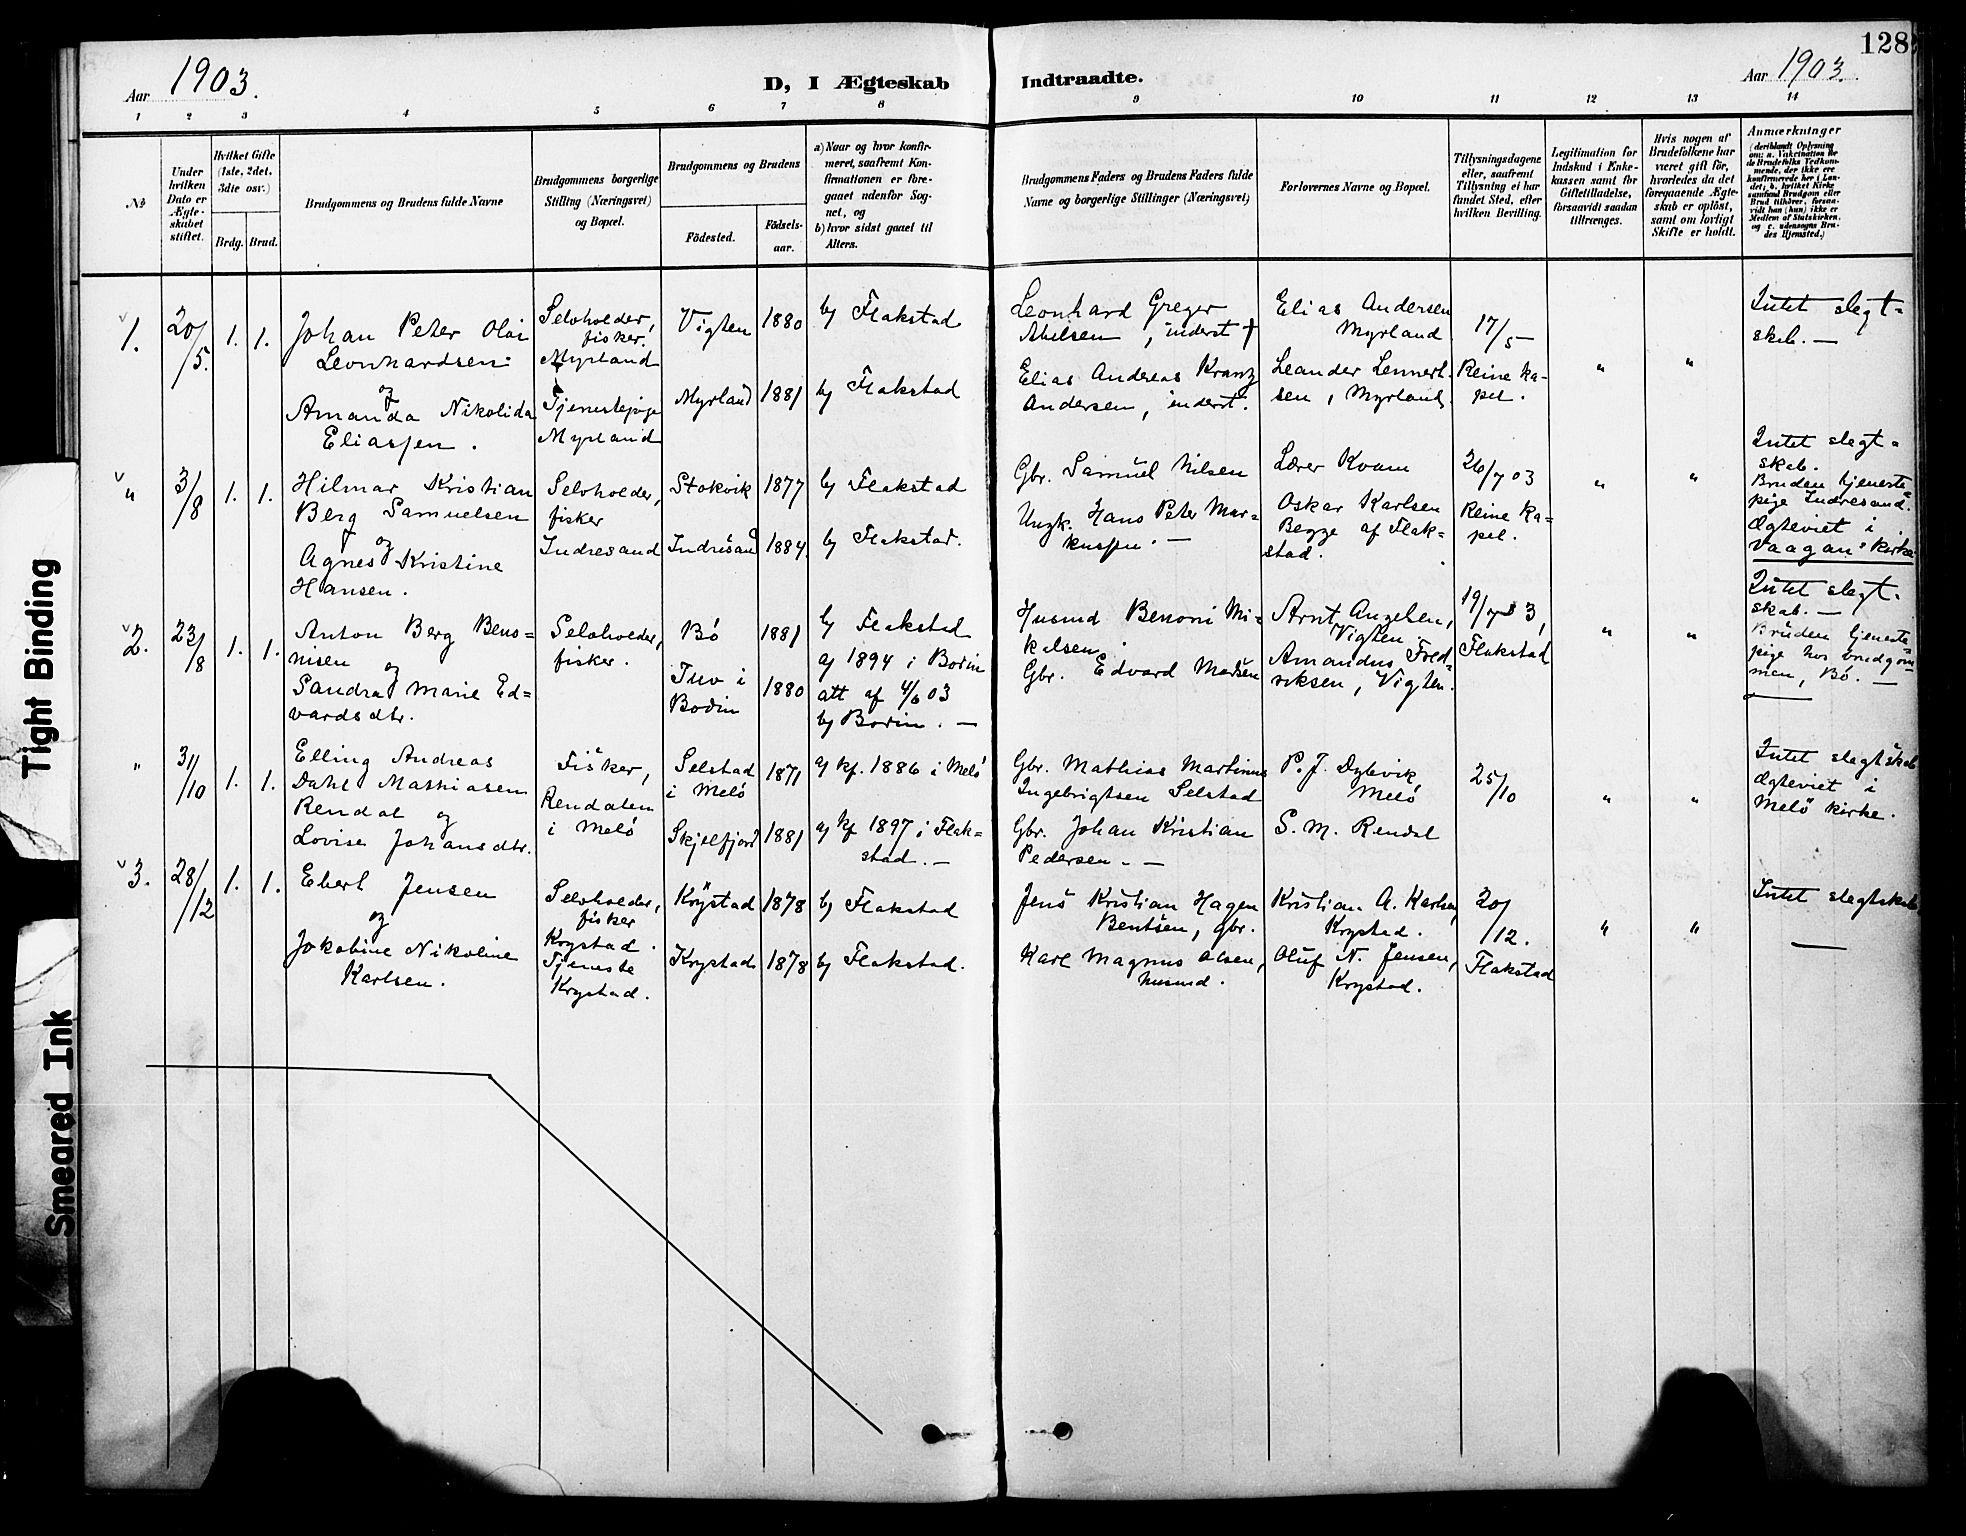 128
Aar 1903.
D, I Ægteskab Indtraadte.
Aar 1903.
1 2 3 4 5 6 7 8 9 10 11 12 13 14
№
Under
hvilken
Dato er
Ægte-
skabet
stiftet.
Hvilket Gifte
(1ste, 2det,
3die osv.)
Brdg. Brud.
Brudgommens og Brudens fulde Navne
Brudgommens borgerlige
Stilling (Næringsvei)
og Bopæl.
Brudgommens og Brudens
Födested.
Födsels-
aar.
a) Naar og hvor konfir-
meret, saafremt Kon-
firmationen er fore-
gaaet udenfor Sog-
net, og
b) hvor sidst gaaet til
Alters.
Brudgommens Faders og Brudens Faders fulde
Navne og borgerlige Stillinger (Næringsvei)
Forlovernes Navne og Bopæl.
Tillysningsdagene
eller, saafremt
Tillysning ei har
fundet Sted, efter
hvilken Bevilling.
Legitimation for
Indskud i Enke-
kassen samt for
Giftetilladelse,
forsaavidt saadan
tiltrænges.
Hvis nogen af
Brudefolkene har
været gift för,
hvorledes da det
foregaaende Ægte-
skab er oplöst,
samt om lovligt
Skifte er holdt.
Anmærkninger
(deriblandt Oplysning
om: a. Vakcination for
de Brudefolks Vedkom-
mende, der ikke ere
konfirmerede her i Lan-
det; b. hvilket Kirke-
samfund Brudgom eller
Brud tilhører, forsaa-
vidt han (hun) ikke er
Medlem af Statskirken,
og c. udensogns Bru-
des Hjemsted.)
1.
20/5.
1. 1.
Johan Peter Olai
Leonhardsen
og
Amanda Nikolida
Eliassen.
Selvholder,
fisker.
Myrland
Tjenestepige
Myrland
Vigten 1880
Myrland 1881
b) Flakstad
b) Flakstad
Leonhard Greger
Abelsen, inderst †
Elias Andreas Krantz
Andersen, inderst.
Elias Andersen
Myrland
Leander Lennert-
sen, Myrland.
17/5
Reine ka-
pel.
" "
Intet slegt-
skab. —
"
3/8
1. 1.
Hilmar Kristian
Berg Samuelsen
og
Agnes Kristine
Hansen.
Selvholder,
fisker
Indresand
Stokvik 1877
Indresand 1884.
b) Flakstad
b) Flakstad.
Gbr. Samuel Nilsen
Ungk. Hans Peter Mar-
kussen. —
Lærer Kvam
Oskar Karlsen
Begge af Flak-
stad.
26/7 03
Reine ka-
pel.
" "
Intet slegt-
skab.
Bruden tjeneste-
pige Indresand.
Ægteviet i
Vaagan kirke
2.
23/8
1. 1.
Anton Berg Beno-
nisen
og
Sandra Marie Ed-
vardsdtr.
Selvholder,
fisker.
Bö 1881
Tuv i
Bodin 1880
b) Flakstad
a) 1894 i Bodin
att af 4/6 03
b) Bodin. —
Husmd Benoni Mi-
kelsen
Gbr. Edvard Madsen
Arnt Angelsen,
Vigten
Amandus Fred-
riksen, Vigten.
19/7 3,
Flakstad
" "
Intet slegt-
skab. —
Bruden tjeneste-
pige hos brudgom-
men, Bö. —
"
31/10
1. 1.
Elling Andreas
Dahl Mathiasen
Rendal og
Lovise Johansdtr.
Fisker,
Rendalen
i Melö
Selstad
i Melö 1871
Skjelfjord 1881
a) kf. 1886 i Melö
a) kf 1897 i Flak-
stad. —
Gbr. Mathias Martinus
Ingebrigtsen Selstad
Gbr. Johan Kristian
Pedersen. —
P. J. Dybvik
Melö
S. M. Rendal
25/10
" "
Intet slegtskab
Ægteviet i
Melö kirke.
3.
28/12
1. 1.
Ebert Jensen
og
Jokobine Nikoline
Karlsen.
Selvholder,
fisker
Krystad.
Tjeneste
Krystad.
Krystad 1878
Krystad 1878
b) Flakstad
b) Flakstad.
Jens Kristian Hagen
Bentsen, gbr.
Karl Magnus Olsen,
husmd.
Kristian A. Karlsen,
Krystad.
Oluf N. Jensen,
Krystad.
20/12.
Flakstad
" "
Intet slegtskab
—
Tight Binding
Smeared Ink